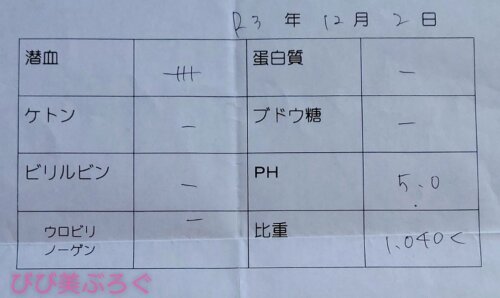 R3年12月2日
潜血 ⧻ 蛋白質 −
ケトン − ブドウ糖 −
ビリルビン − PH 5.0
ウロビリ − 比重 1.040<
ノーゲン
びび美ぶろぐ